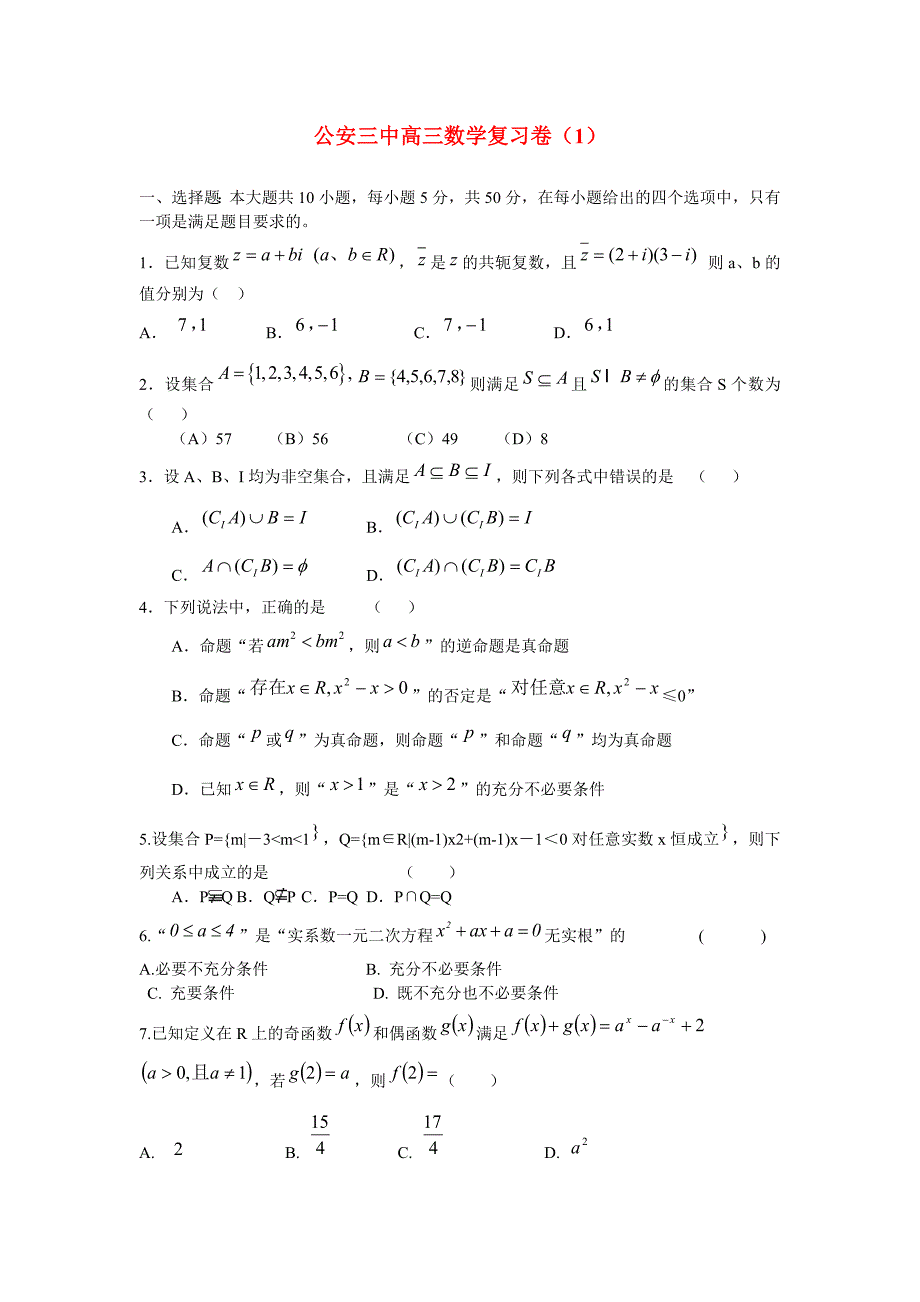 公安三中高三数学复习卷（1）
一、选择题：本大题共10小题，每小题5分，共50分，在每小题给出的四个选项中，只有
一项是满足题目要求的。
1．已知复数 z = a + bi (a、b ∈ R)，z̅ 是 z 的共轭复数，且 z̅ = (2 + i)(3 − i) 则 a、b 的
值分别为（ ）
A． 7，1 B．6，−1 C．7，−1 D．6，1
2．设集合 A = {1,2,3,4,5,6}, B = {4,5,6,7,8} 则满足 S ⊆ A 且 S I B ≠ ϕ 的集合 S 个数为
（ ）
（A）57 （B）56 （C）49 （D）8
3．设 A、B、I 均为非空集合，且满足 A ⊆ B ⊆ I，则下列各式中错误的是 （ ）
A．(C_I A) ∪ B = I B．(C_I A) ∪ (C_I B) = I
C．A ∩ (C_I B) = ϕ D．(C_I A) ∩ (C_I B) = C_I B
4．下列说法中，正确的是 （ ）
A．命题“若 am² < bm²，则 a < b”的逆命题是真命题
B．命题“存在x ∈ R, x² − x > 0”的否定是“对任意x ∈ R, x² − x ≤0”
C．命题“p 或 q”为真命题，则命题“p”和命题“q”均为真命题
D．已知 x ∈ R，则“x > 1”是“x > 2”的充分不必要条件
5.设集合 P={m|－3<m<1}，Q={m∈R|(m-1)x2+(m-1)x－1＜0 对任意实数 x 恒成立}，则下
列关系中成立的是 （ ）
A．P⫋Q B．Q⫋P C．P=Q D．P∩Q=Q
6.“0 ≤ a ≤ 4”是“实系数一元二次方程 x² + ax + a = 0 无实根”的 ( )
A.必要不充分条件 B. 充分不必要条件
C. 充要条件 D. 既不充分也不必要条件
7.已知定义在 R 上的奇函数 f(x) 和偶函数 g(x) 满足 f(x) + g(x) = aˣ − a⁻ˣ + 2
(a > 0, 且a ≠ 1)，若 g(2) = a，则 f(2) =（ ）
A. 2 B. 15/4 C. 17/4 D. a²